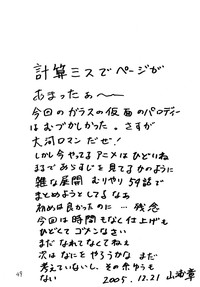 計算ミスでページが
あまったぁ〜
今回のガラスの仮面のパロディー
はむづかしかった。さすが
大河ロマンだぜ!
しかし今やってるアニメはひどいね
まるであらすじを見てるかのように
雑な展開 むりやり59話で
まとめようとしてるなう
初めは良かったのに… 残念
今回は時間もなく仕上げも
ひどくてゴメンなさい
まだなれてなくてねぇ
次はなにをやろうかな まだ
考えていないし、そのよゆうも
ない 2005.12.21 山
49